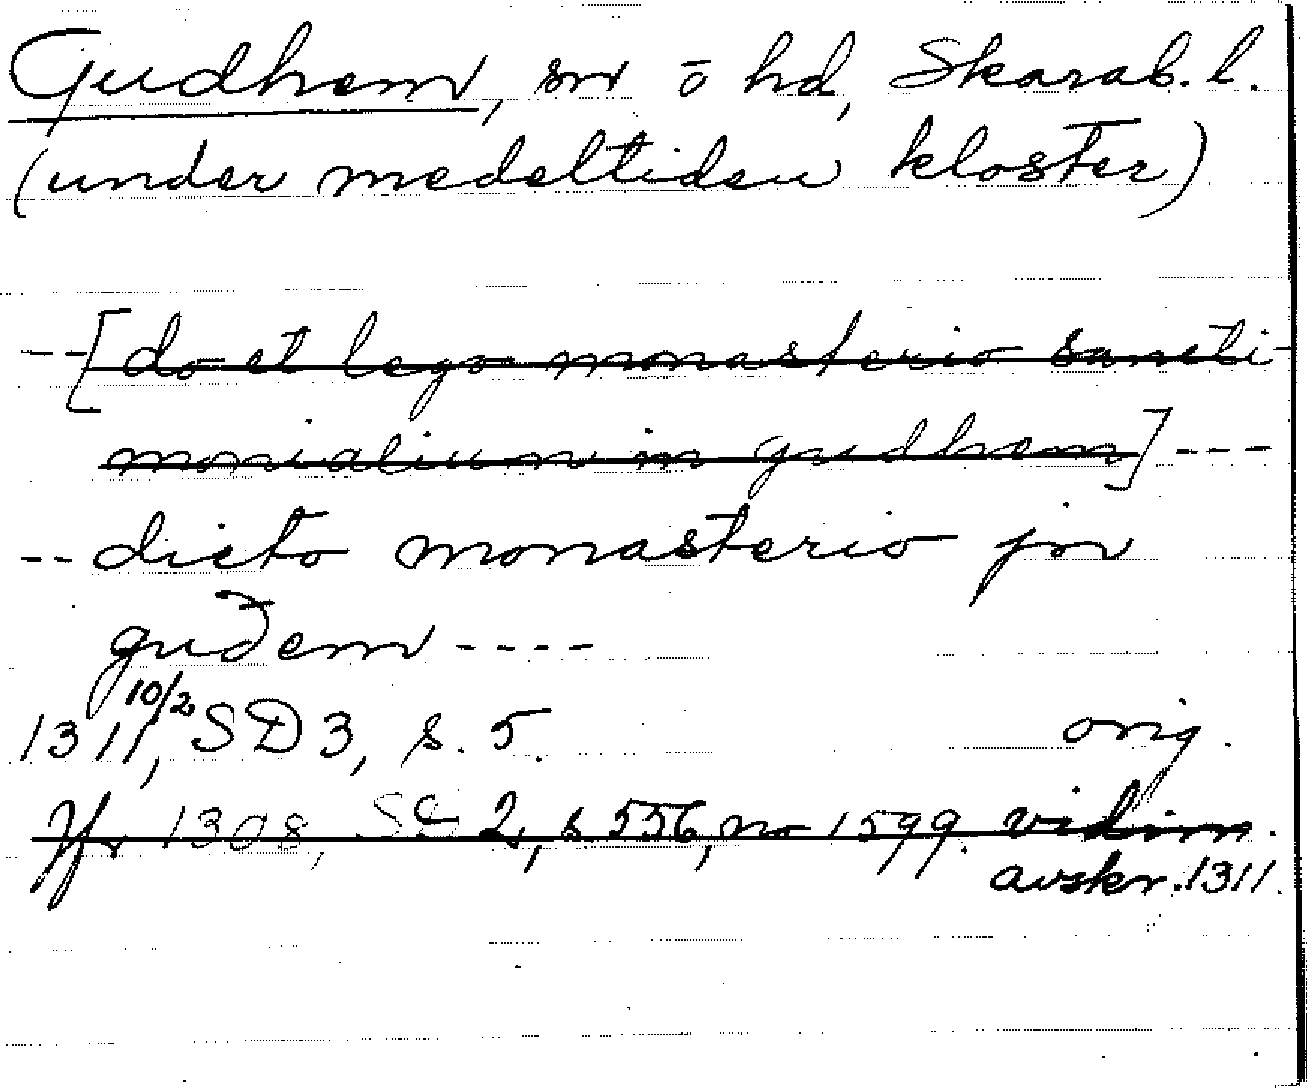 Gudhem, sn o hd, Skarab. l.
(under medeltiden kloster)
--[do et lego monasterio sancti-
monialium in gudhem]---
-- dicto monasterio jn
guðem ----
1311 10/2, SD 3, s. 5. orig.
Jfr 1308, SD 2, s 556, no 1599. vidim.
avskr. 1311.